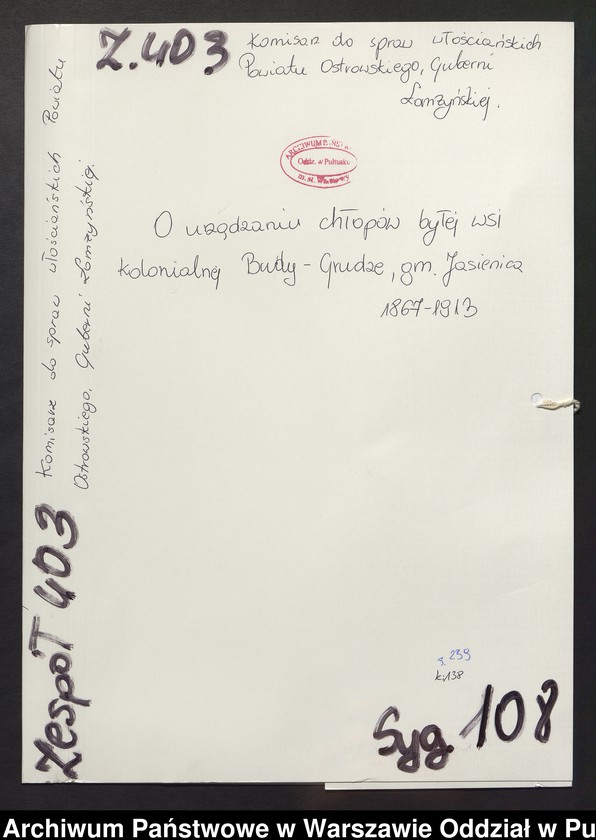 Z.403
Komisarz do spraw włościańskich
Powiatu Ostrowskiego, Guberni
Łomżyńskiej.
ARCHIWUM PAŃSTW.
Oddz. w Pułtusku
m. st. Warszawy
O urządzaniu chłopów byłej wsi
kolonialnej Budy-Grudze, gm. Jasienica
1867-1913
Komisarz do spraw włościańskich Powiatu
Ostrowskiego, Guberni Łomżyńskiej.
Zespół 403
s. 239
k. 138
Syg. 108
Archiwum Państwowe w Warszawie Oddział w Pu